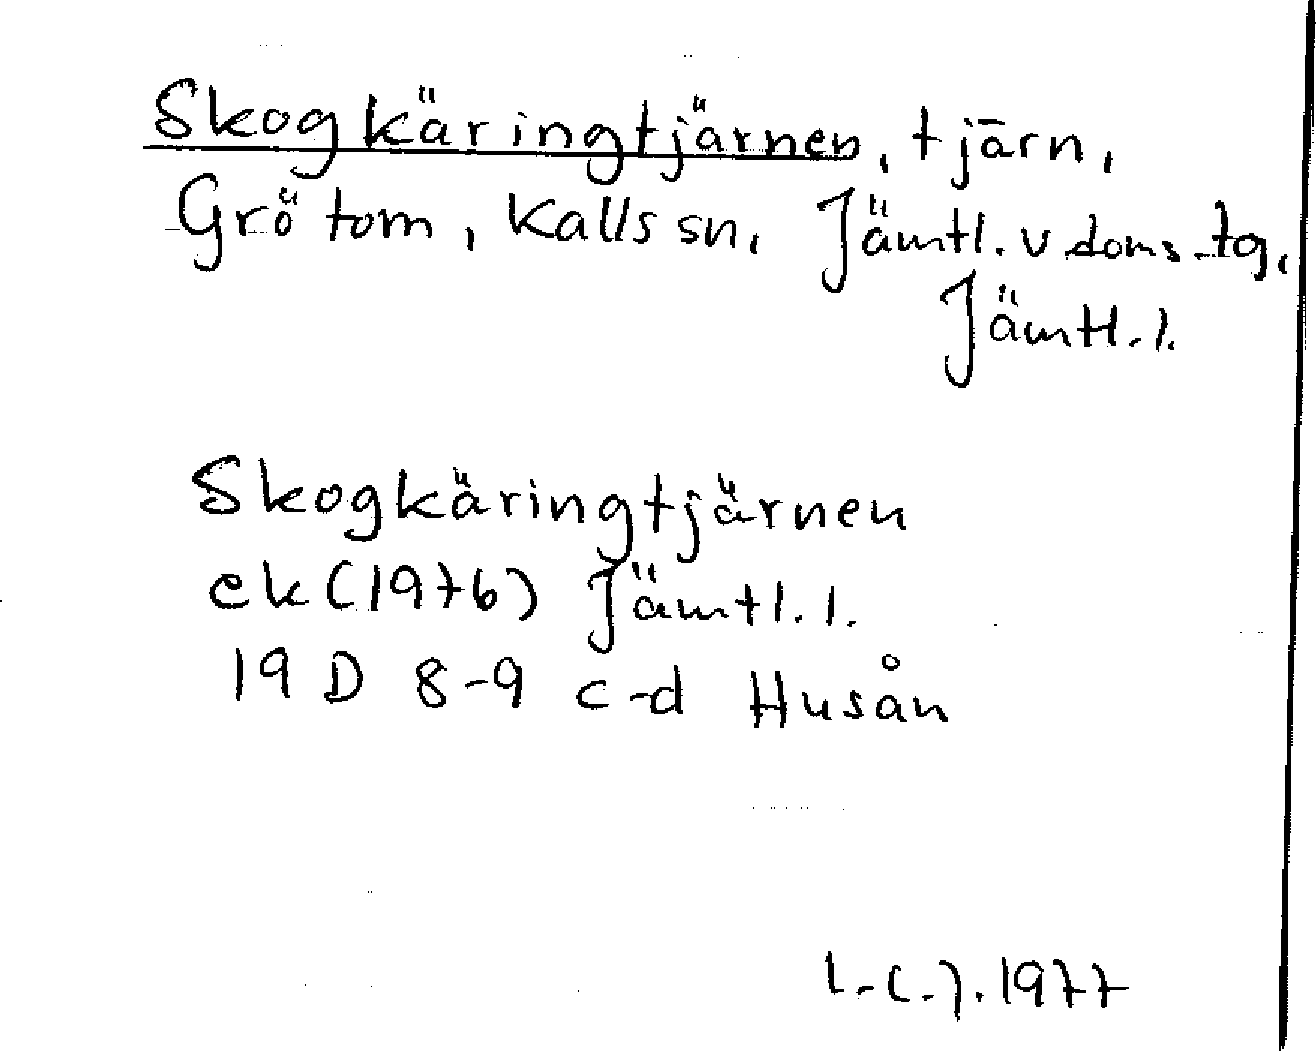 Skogkäringtjärnen, tjärn,
Grötom, Kalls sn, Jämtl. v doms.tg,
Jämtl.l.
Skogkäringtjärnen
ek (1976) Jämtl.l.
19 D 8-9 c-d Husån
L.C.J. 1977